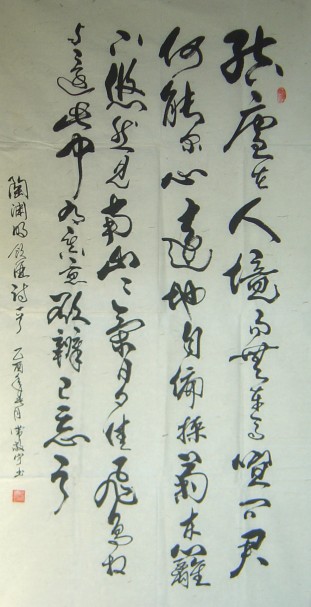 結廬在人境而無車馬喧問君
何能尔心遠地自偏採菊東籬
下悠然見南山々氣日夕佳飛鳥相
与還此中有真意欲辨已忘言
陶渊明饮酒诗一首 乙酉年 月 书